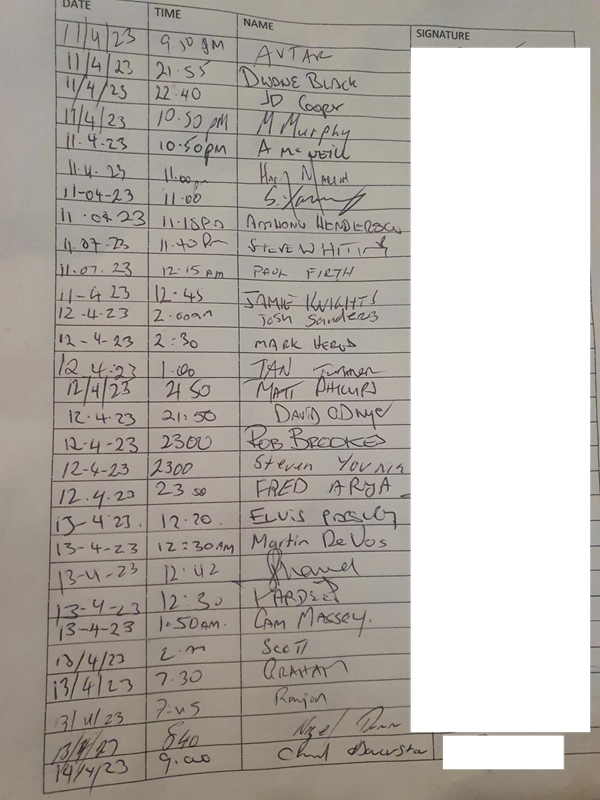 DATE TIME NAME SIGNATURE
11/4/23 9.30 pm AVTAR
11/4/23 21.55 Dwane Black
11/4/23 22.40 JD Cooper
11/4/23 10.50 pm M Murphy
11.4.23 10.50pm A McNeill
11.4.23 11.00
11-04-23 11.00 S.
11.04.23 11.15PM ANTHONY HENDERSON
11.07.23 11.40 Pm STEVE WHITING
11.07.23 12.15 AM PAUL FIRTH
11-4 23 12.45 JAMIE KNIGHTS
12-4-23 2.00am Josh Sanders
12-4-23 2:30 MARK
12.4.23 1-00 IAN Turner
12/4/23 21 50 MATT PHILLIPS
12.4.23 21:50 DAVID ODwyer
12-4-23 2300 ROB BROOKES
12-4-23 2300 Steven YOUNG
12.4.23 23 50 FRED ARYA
13-4 23. 12.20. ELVIS PRESLEY
13-4-23 12:30AM Martin DeVos
13-4-23 12:42
13-4-23 12:30 HARDEEP
13-4-23 1.50AM. CAM MASSEY.
13/4/23 SCOTT
13/4/23 7.30 GRAHAM
13/4/23 7:45 Ranjan
13/4/23 840 Nigel
14/4/23 9.00